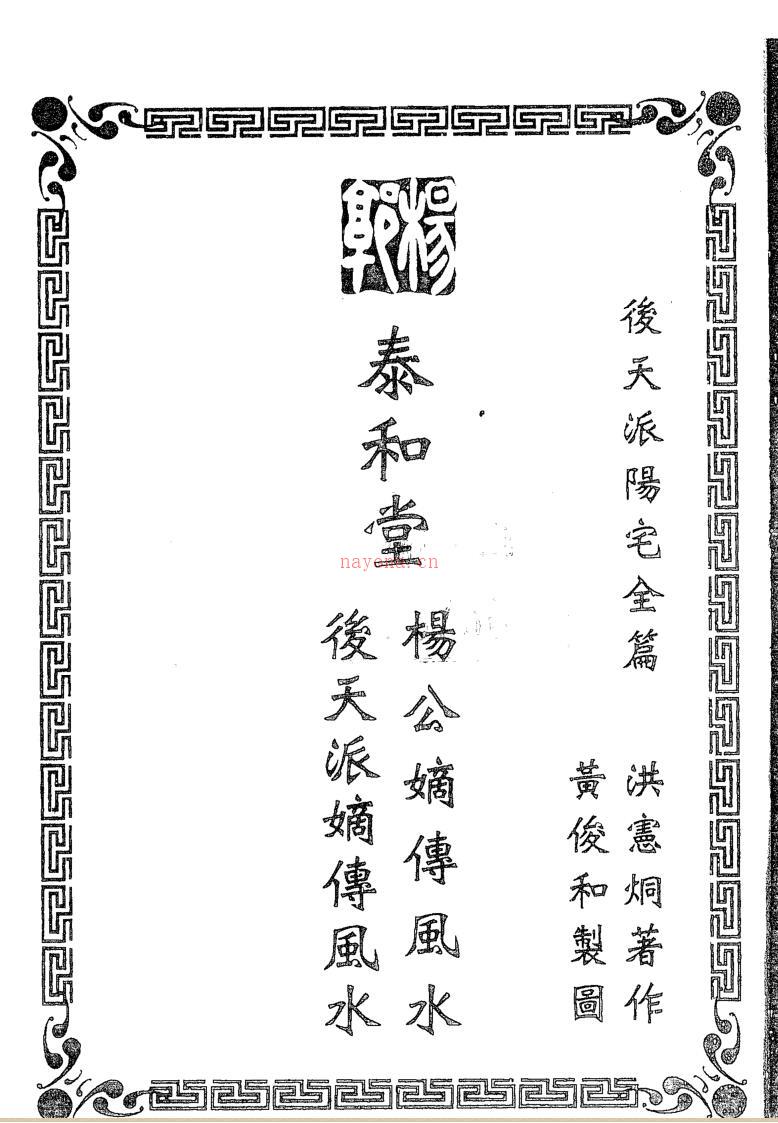 後天派陽宅全篇
洪憲炯著作
黃俊和製圖
楊郭
泰和堂
楊公嫡傳風水
後天派嫡傳風水
nayona.cn